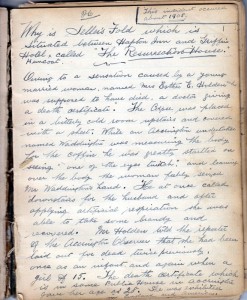 26
This incident occurred
about 1905.
Why is Sellers Fold which is
Situated between Hapton Inn and Griffin
Hotel called "The Resurrection House".
Owing to a sensation caused by a young
married woman, named Mrs Esther E. Holden
was supposed to have died, a doctor giving
a death certificate. The Corpse was placed
in a bitterly cold room upstairs and covered
with a sheet. While an Accrington undertaker
named Waddington was measuring the body
for the coffin he was greatly startled on
seeing "one of the eyes twitch", and leaning
over the body the woman feebly seized
Mr Waddington's hand. He at once called
downstairs for the husband and after
applying artificial respiration she was
able to take some brandy and
recovered. Mrs Holden told the reporter
of the Accrington Observer that she had been
laid out for dead twice previously
once as an infant and again when a
girl of 15. The death certificate which
is in some Public House in Accrington
gave her age as 28. She was